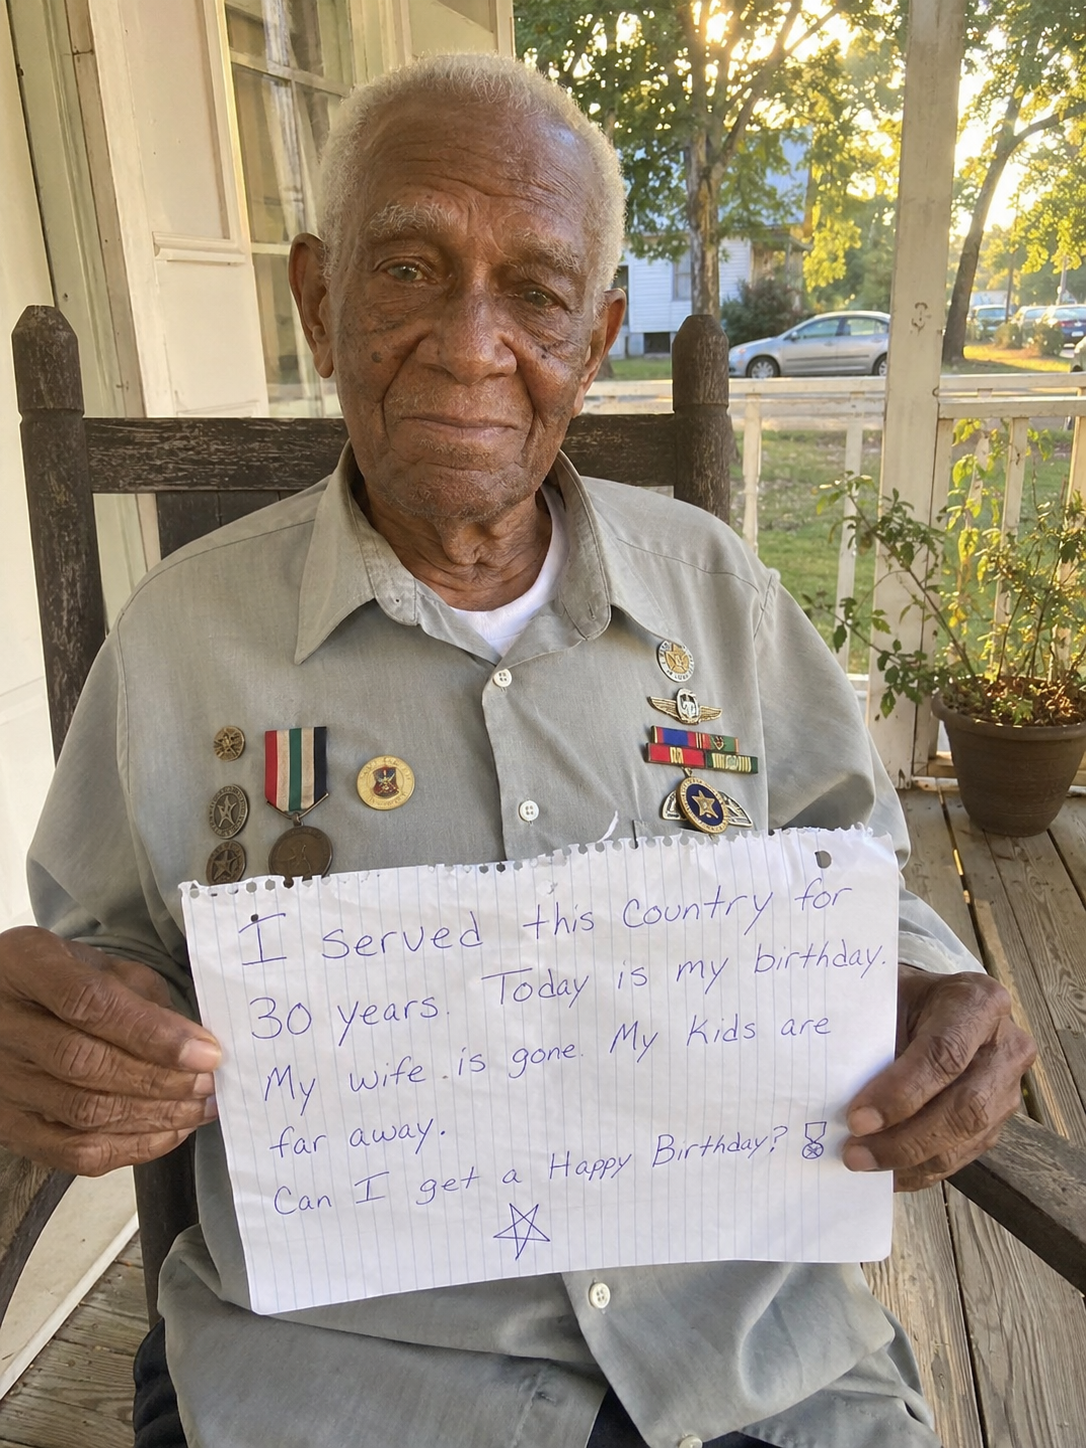 I served this Country for
30 years. Today is my birthday.
My wife is gone. My Kids are
far away.
Can I get a Happy Birthday?